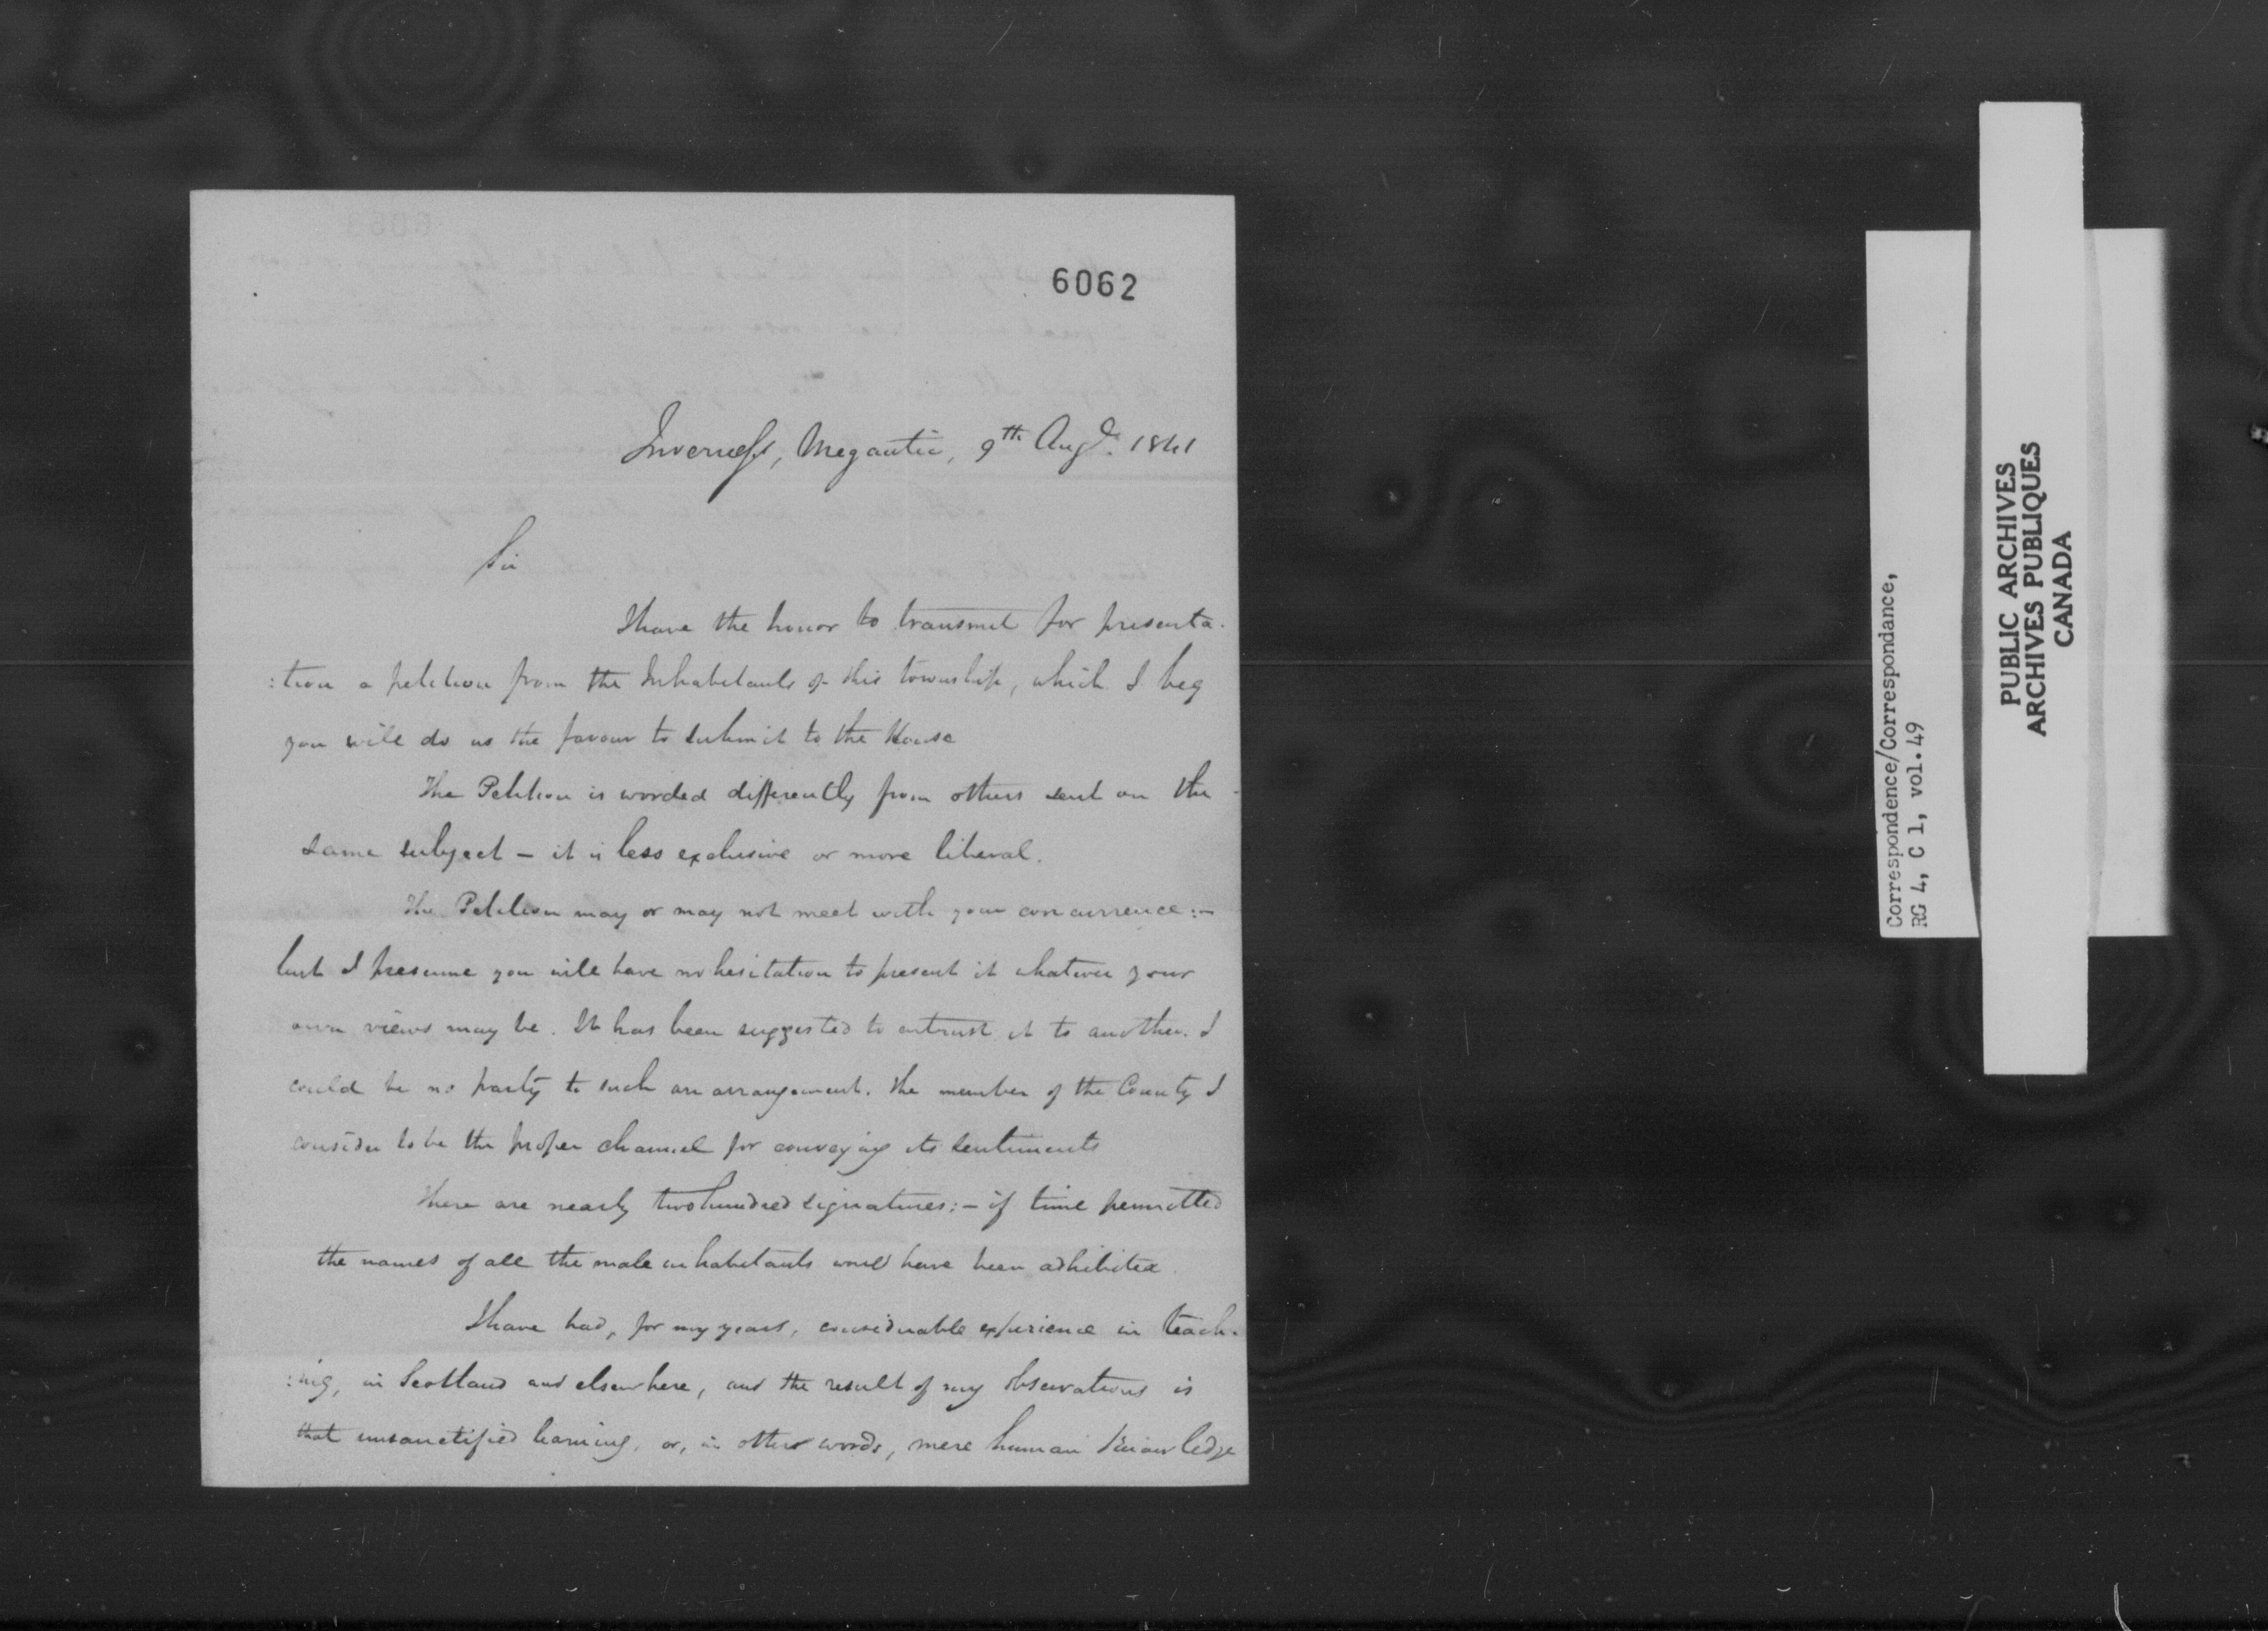 6062
Inverness, Megantic, 9th Augt. 1841
Sir
I have the honor to transmit for presenta-
:tion a petition from the Inhabitants of this township, which I beg
you will do us the favour to submit to the House
The Petition is worded differently from others sent on the
same subject – it is less exclusive or more liberal.
The Petition may or may not meet with your concurrence:–
but I presume you will have no hesitation to present it whatever your
own views may be. It has been suggested to entrust it to another. I
could be no party to such an arrangement. The member of the County I
consider to be the proper channel for conveying its sentiments
There are nearly two hundred signatures:– if time permitted
the names of all the male inhabitants would have been adhibited.
I have had, for my years, considerable experience in teach-
:ing, in Scotland and elsewhere, and the result of my observations is
that unsanctified learning, or, in other words, mere human knowledge
Correspondence/Correspondance,
RG 4, C 1, vol. 49
PUBLIC ARCHIVES
ARCHIVES PUBLIQUES
CANADA